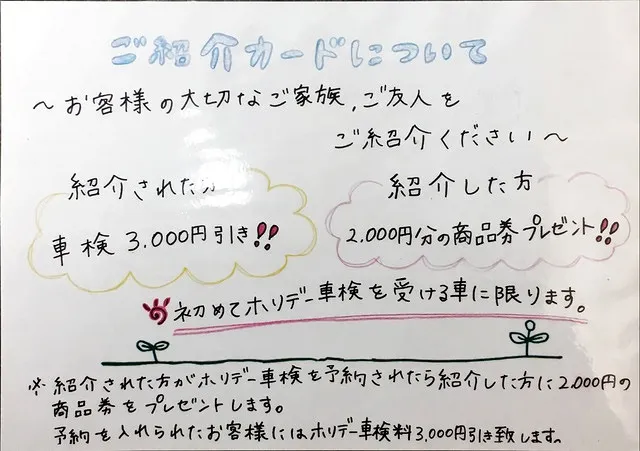 ご紹介カードについて
～お客様の大切なご家族,ご友人を
ご紹介ください～
紹介された方
車検 3.000円引き!!
紹介した方
2.000円分の商品券プレゼント!!
初めてホリデー車検を受ける車に限ります。
※紹介された方がホリデー車検を予約されたら紹介した方に2.000円の
商品券をプレゼントします。
予約を入れられたお客様にはホリデー車検料3,000円引き致します。